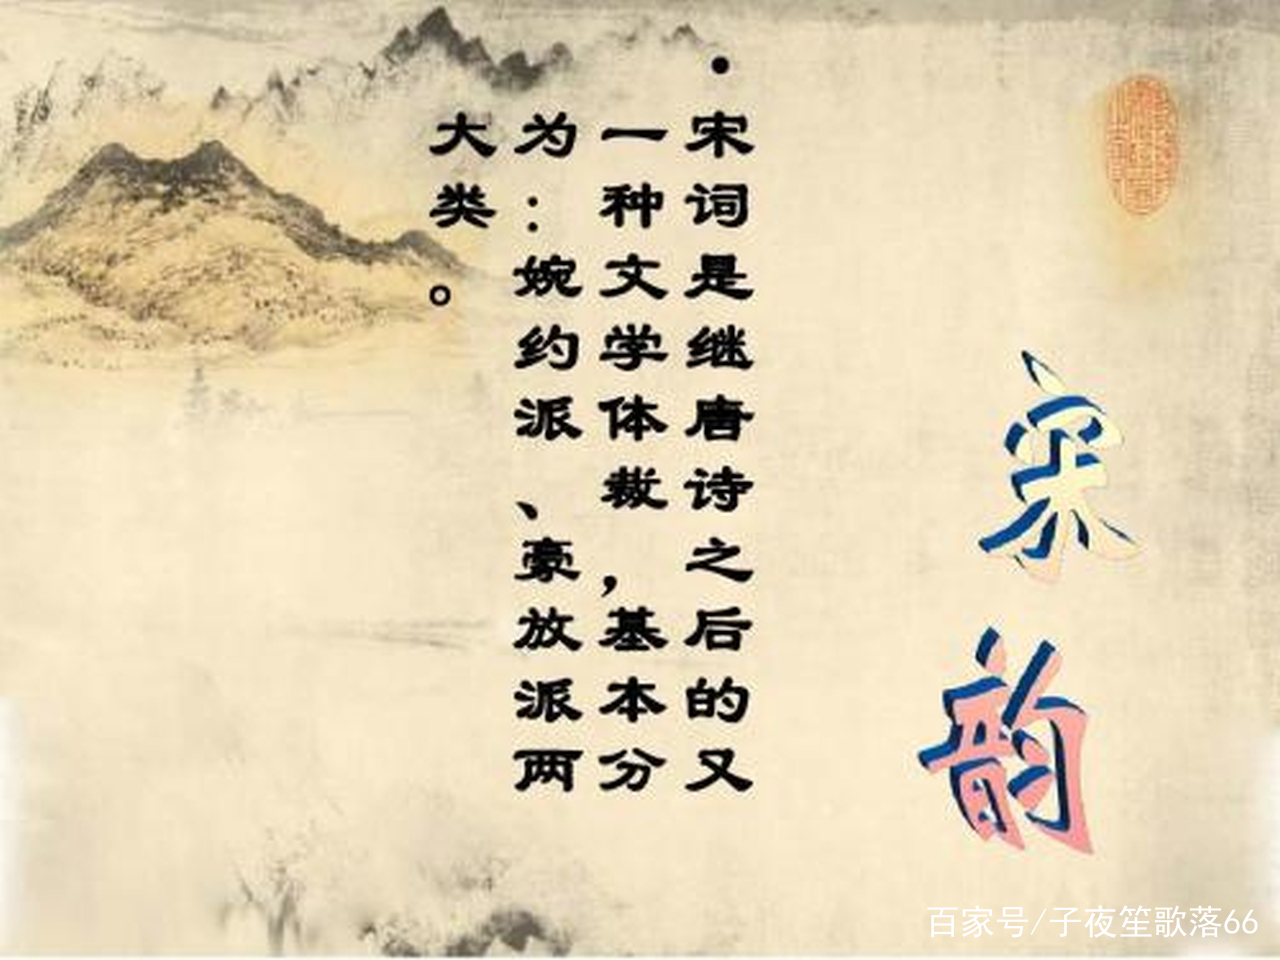 宋韵
·宋词是继唐诗之后的又
一种文学体裁，基本分
为：婉约派、豪放派两
大类。
百家号/子夜笙歌落66